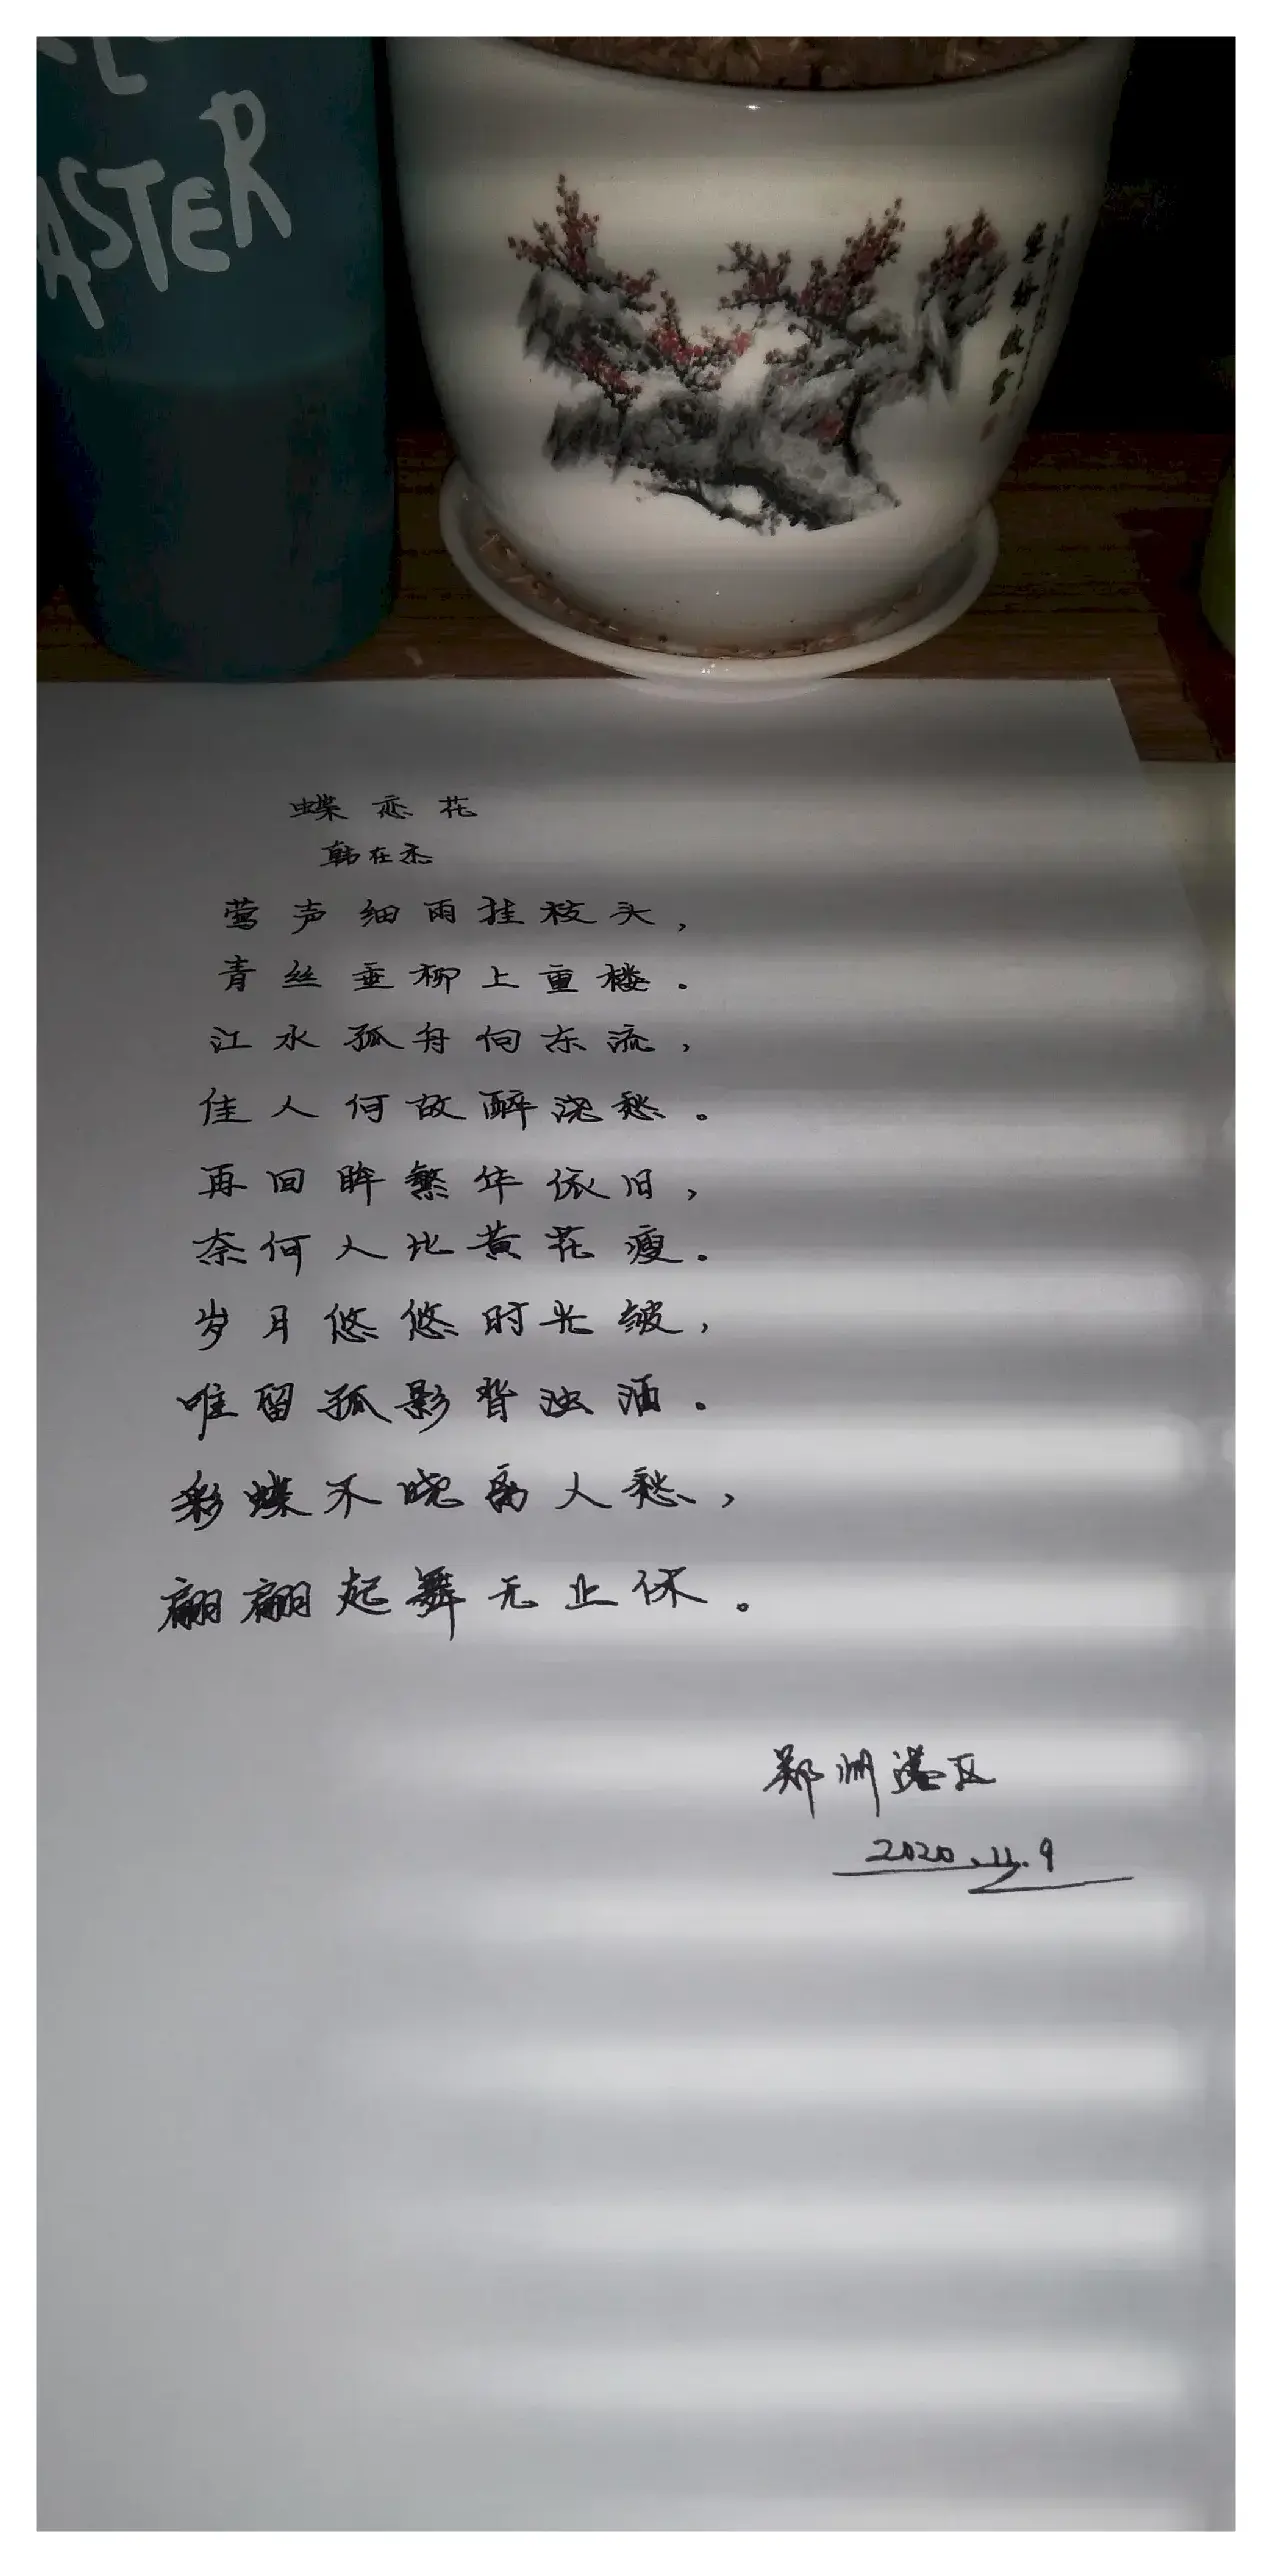 ASTER
蝶恋花
韩在杰
莺声细雨挂枝头，
青丝垂柳上重楼．
江水孤舟向东流，
佳人何故醉浇愁。
再回眸繁华依旧，
奈何人比黄花瘦．
岁月悠悠时光皱，
唯留孤影背浊酒．
彩蝶不晓离人愁，
翩翩起舞无止休。
郑州港区
2020.11.9